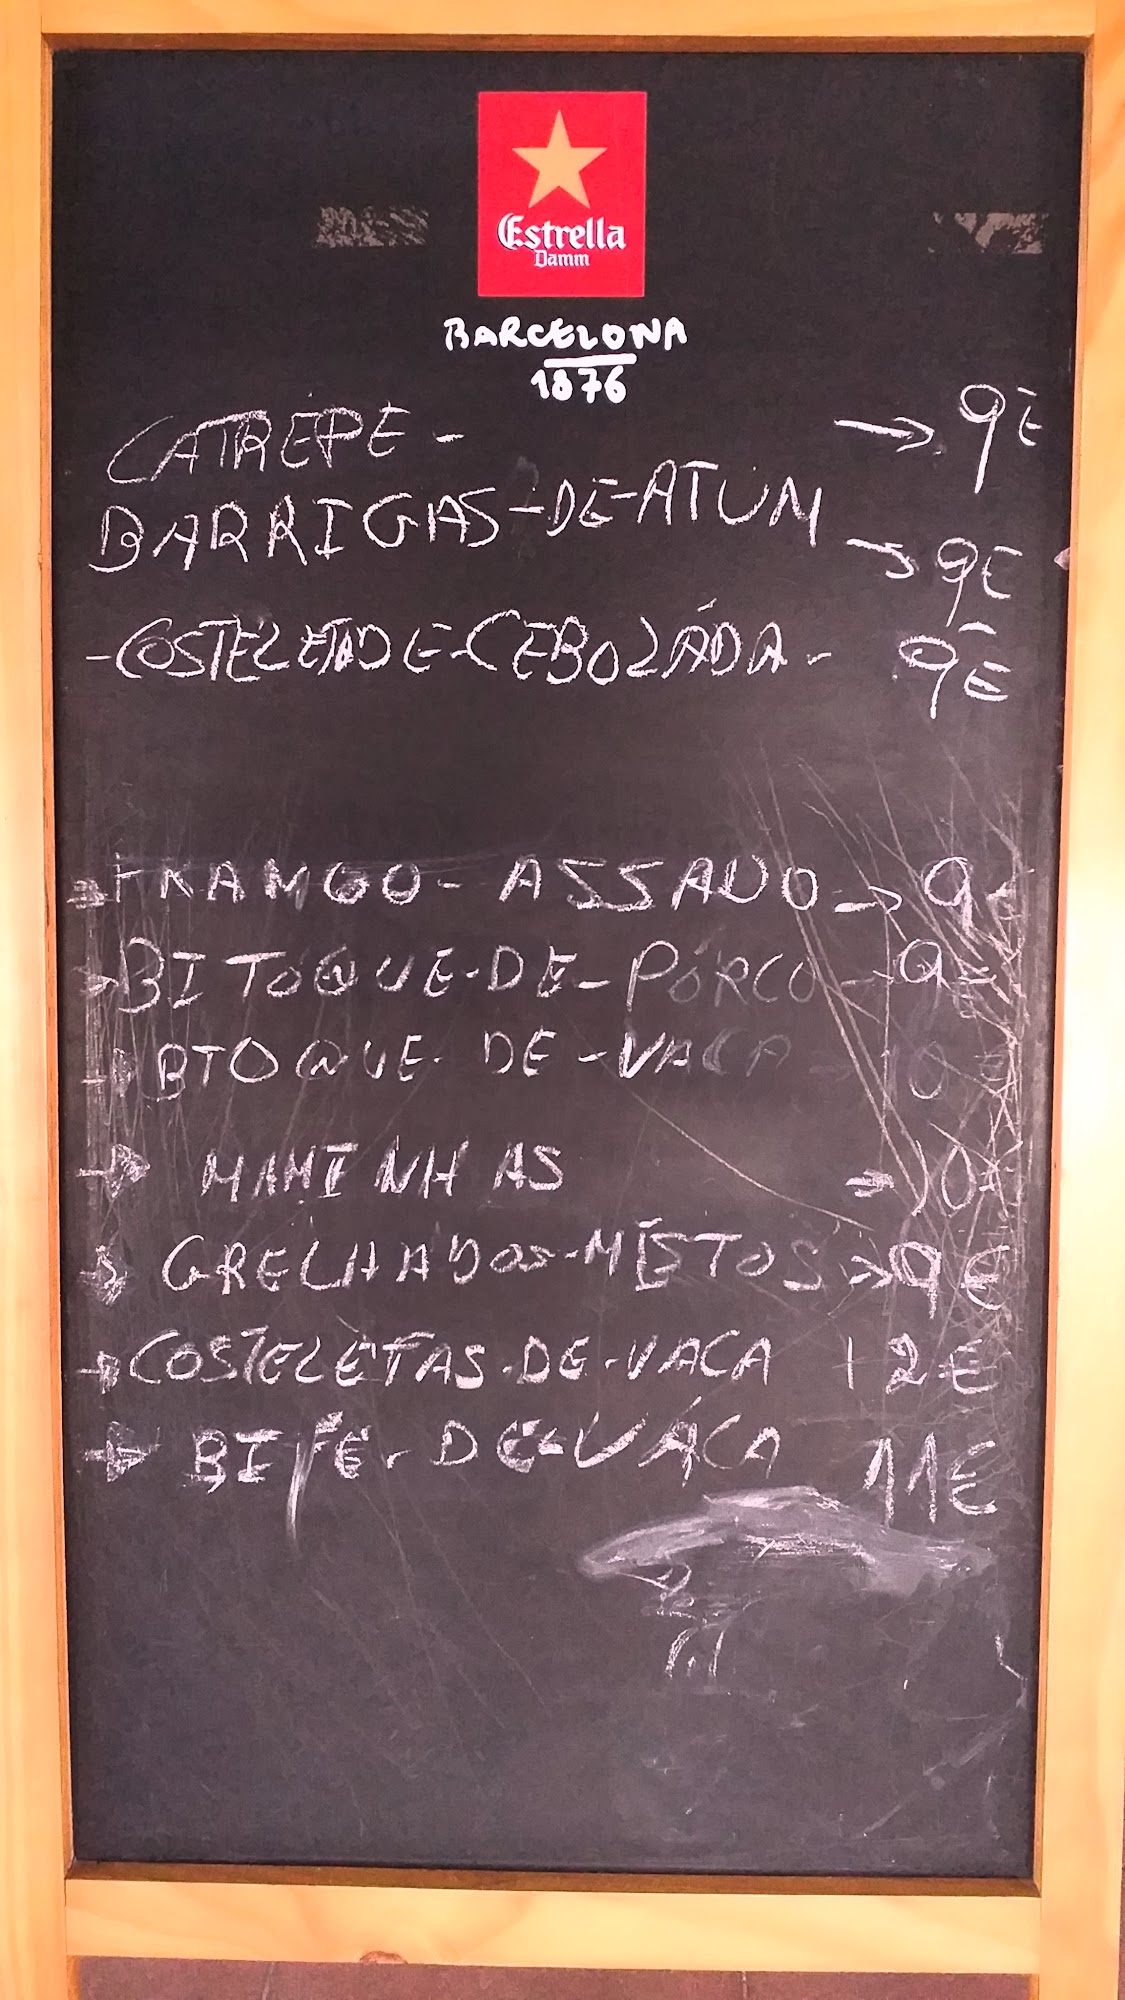 Estrella
Damm
BARCELONA
1876
CATREPE - → 9€
BARRIGAS-DE-ATUM → 9€
-COSTELETADE-CEBOLÁDA - 9€
→ FRAMGO- ASSADO → 9€
→ BITOQUE-DE-PÓRCO → 9€
→ BTOQUE- DE-VACA
→ MAMINHAS → 10€
→ GRELHADOS-MISTOS → 9€
→ COSTELETAS-DE-VACA 12€
→ BIFE- DE-VÁCA 11€